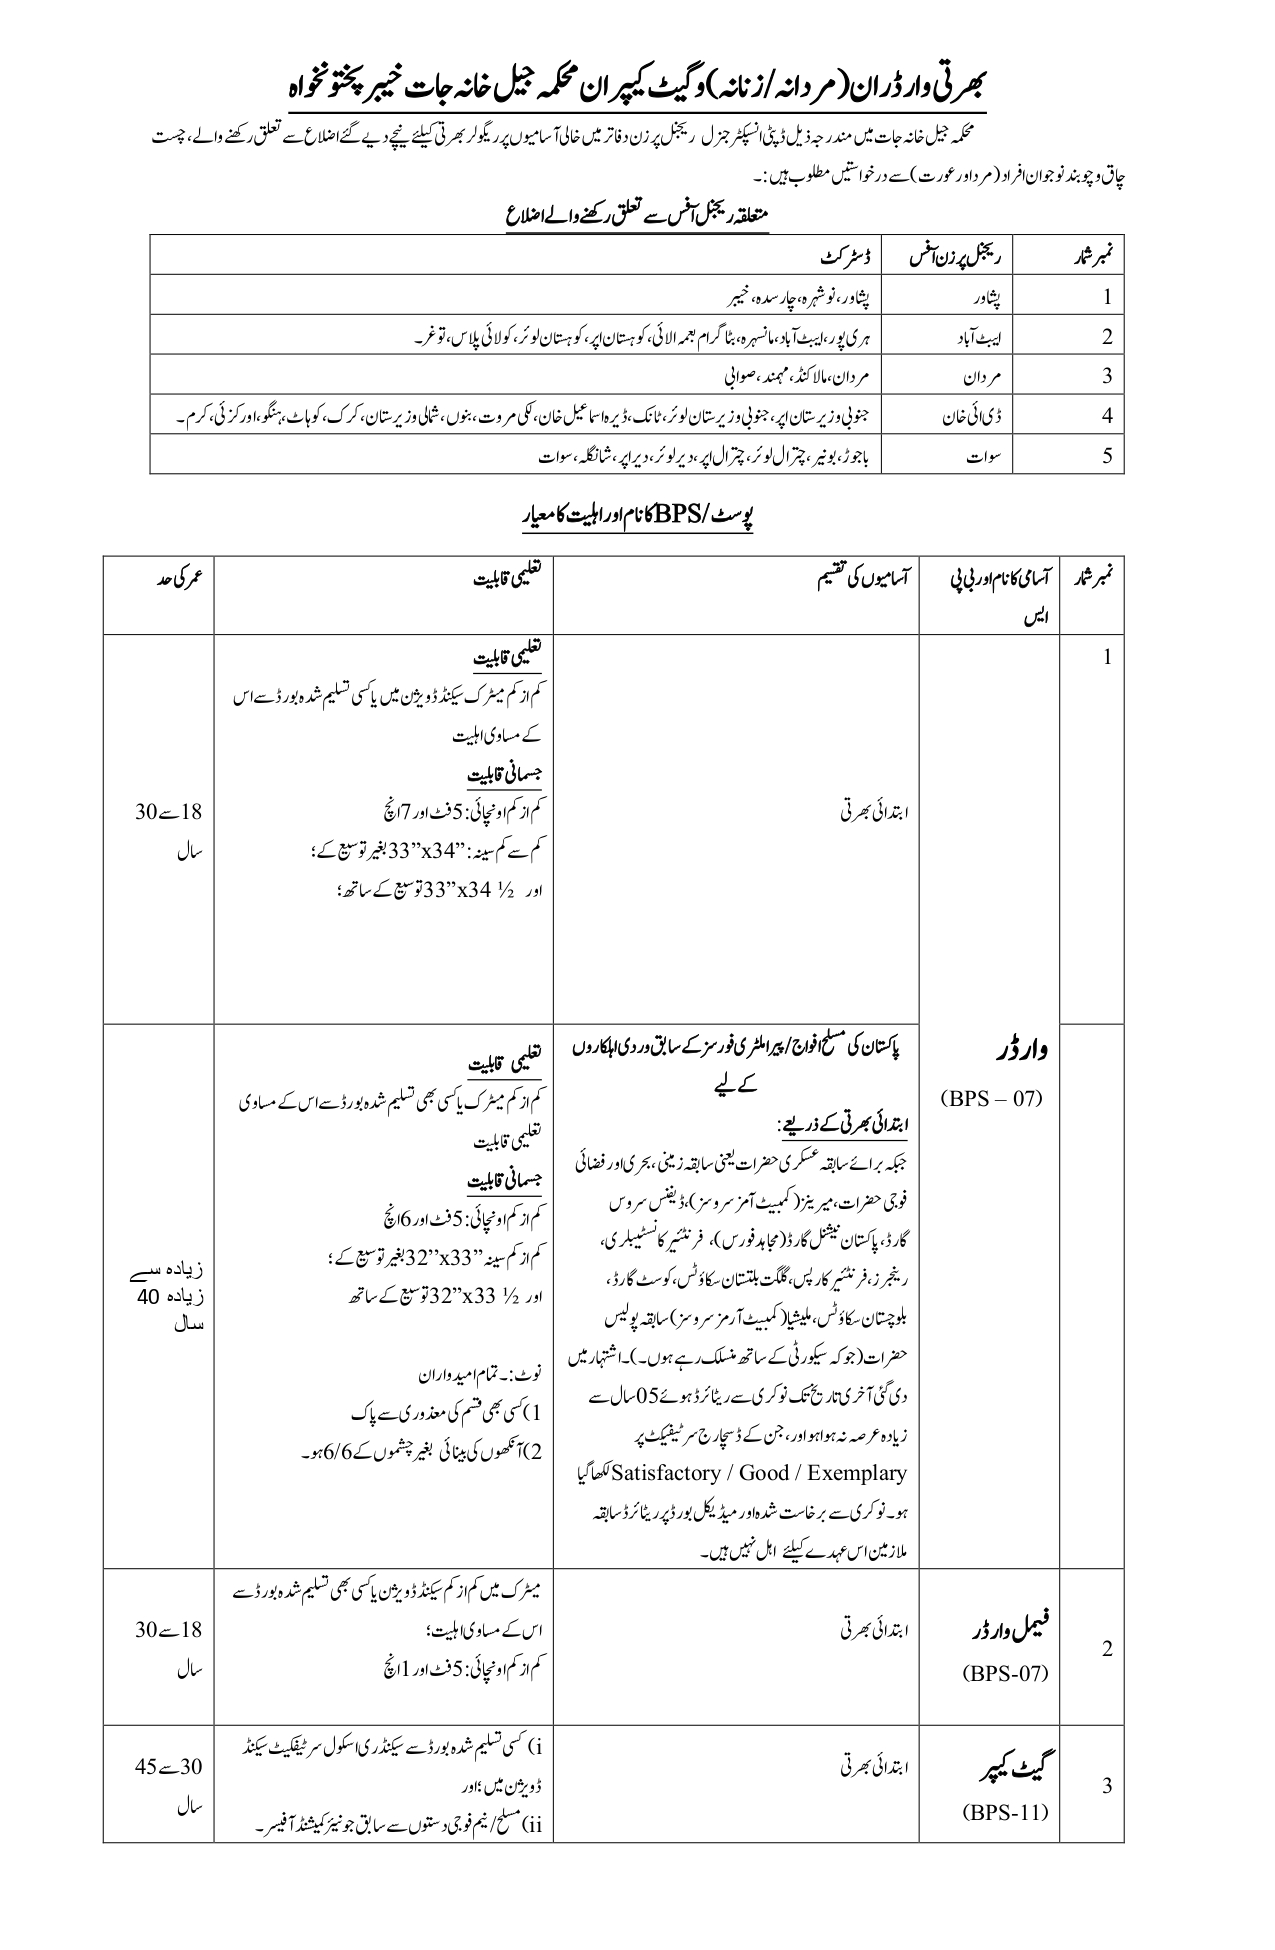 بھرتی وارڈران (مردانہ/زنانہ) و گیٹ کیپران محکمہ جیل خانہ جات خیبر پختونخواہ
محکمہ جیل خانہ جات میں مندرجہ ذیل ڈپٹی انسپکٹر جنرل ریجنل پرزن دفاتر میں خالی آسامیوں پر ریگولر بھرتی کیلئے نیچے دیے گئے اضلاع سے تعلق رکھنے والے، چست
چاق و چوبند نوجوان افراد (مرد اور عورت) سے درخواستیں مطلوب ہیں:۔
متعلقہ ریجنل آفس سے تعلق رکھنے والے اضلاع
نمبر شمار ریجنل پرزن آفس ڈسٹرکٹ
1 پشاور پشاور، نوشہرہ، چارسدہ، خیبر
2 ایبٹ آباد ہری پور، ایبٹ آباد، مانسہرہ، بٹاگرام بعمہ الائی، کوہستان اپر، کوہستان لوئر، کولائی پلاس، تورغر۔
3 مردان مردان، مالاکنڈ، مہمند، صوابی
4 ڈی ائی خان جنوبی وزیرستان اپر، جنوبی وزیرستان لوئر، ٹانک، ڈیرہ اسماعیل خان، لکی مروت، بنوں، شمالی وزیرستان، کرک، کوہاٹ، ہنگو، اورکزئی، کرم۔
5 سوات باجوڑ، بونیر، چترال لوئر، چترال اپر، دیر لوئر، دیر اپر، شانگلہ، سوات
پوسٹ/BPS کا نام اور اہلیت کا معیار
نمبر شمار آسامی کا نام اور بی پی آسامیوں کی تقسیم تعلیمی قابلیت عمر کی حد
ایس
1
تعلیمی قابلیت
کم از کم میٹرک سیکنڈ ڈویژن میں یا کسی تسلیم شدہ بورڈ سے اس
کے مساوی اہلیت
جسمانی قابلیت
ابتدائی بھرتی
کم از کم اونچائی: 5 فٹ اور 7 انچ
کم سے کم سینہ: 33”x34” بغیر توسیع کے؛
اور 33”x34 ½ توسیع کے ساتھ؛
18 سے 30
سال
وارڈر
(BPS – 07)
پاکستان کی مسلح افواج / پیرا ملٹری فورسز کے سابق وردی اہلکاروں
کے لیے
ابتدائی بھرتی کے ذریعے:
جبکہ برائے سابقہ عسکری حضرات یعنی سابقہ زمینی، بحری اور فضائی
فوجی حضرات، میرینز (کمبیٹ آمز سروسز)، ڈیفنس سروس
گارڈ، پاکستان نیشنل گارڈ (مجاہد فورس)، فرنٹئیر کانسٹیبلری،
رینجرز، فرنٹئیر کارپس، گلگت بلتستان سکاؤٹس، کوسٹ گارڈ،
بلوچستان سکاؤٹس، ملیشیا (کمبیٹ آرمز سروسز) سابقہ پولیس
حضرات (جو کہ سیکورٹی کے ساتھ منسلک رہے ہوں۔)۔ اشتہار میں
دی گئی آخری تاریخ تک نوکری سے ریٹائرڈ ہوئے 05 سال سے
زیادہ عرصہ نہ ہوا ہو اور، جن کے ڈسچارج سرٹیفیکٹ پر
Satisfactory / Good / Exemplary لکھا گیا
ہو۔ نوکری سے برخاست شدہ اور میڈیکل بورڈ پر ریٹائرڈ سابقہ
ملازمین اس عہدے کیلئے اہل نہیں ہیں۔
تعلیمی قابلیت
کم از کم میٹرک یا کسی بھی تسلیم شدہ بورڈ سے اس کے مساوی
تعلیمی قابلیت
جسمانی قابلیت
کم از کم اونچائی: 5 فٹ اور 6 انچ
کم از کم سینہ 32”x33” بغیر توسیع کے؛
اور 32”x33 ½ توسیع کے ساتھ
نوٹ:۔ تمام امیدواران
1) کسی بھی قسم کی معذوری سے پاک
2) آنکھوں کی بینائی بغیر چشموں کے 6/6 ہو۔
زیادہ سے
زیادہ 40
سال
2
فیمل وارڈر
(BPS-07)
ابتدائی بھرتی
میٹرک میں کم از کم سیکنڈ ڈویژن یا کسی بھی تسلیم شدہ بورڈ سے
اس کے مساوی اہلیت؛
کم از کم اونچائی: 5 فٹ اور 1 انچ
18 سے 30
سال
3
گیٹ کیپر
(BPS-11)
ابتدائی بھرتی
i) کسی تسلیم شدہ بورڈ سے سیکنڈری اسکول سرٹیفکیٹ سیکنڈ
ڈویژن میں؛ اور
ii) مسلح/نیم فوجی دستوں سے سابق جونیئر کمیشنڈ آفیسر۔
30 سے 45
سال